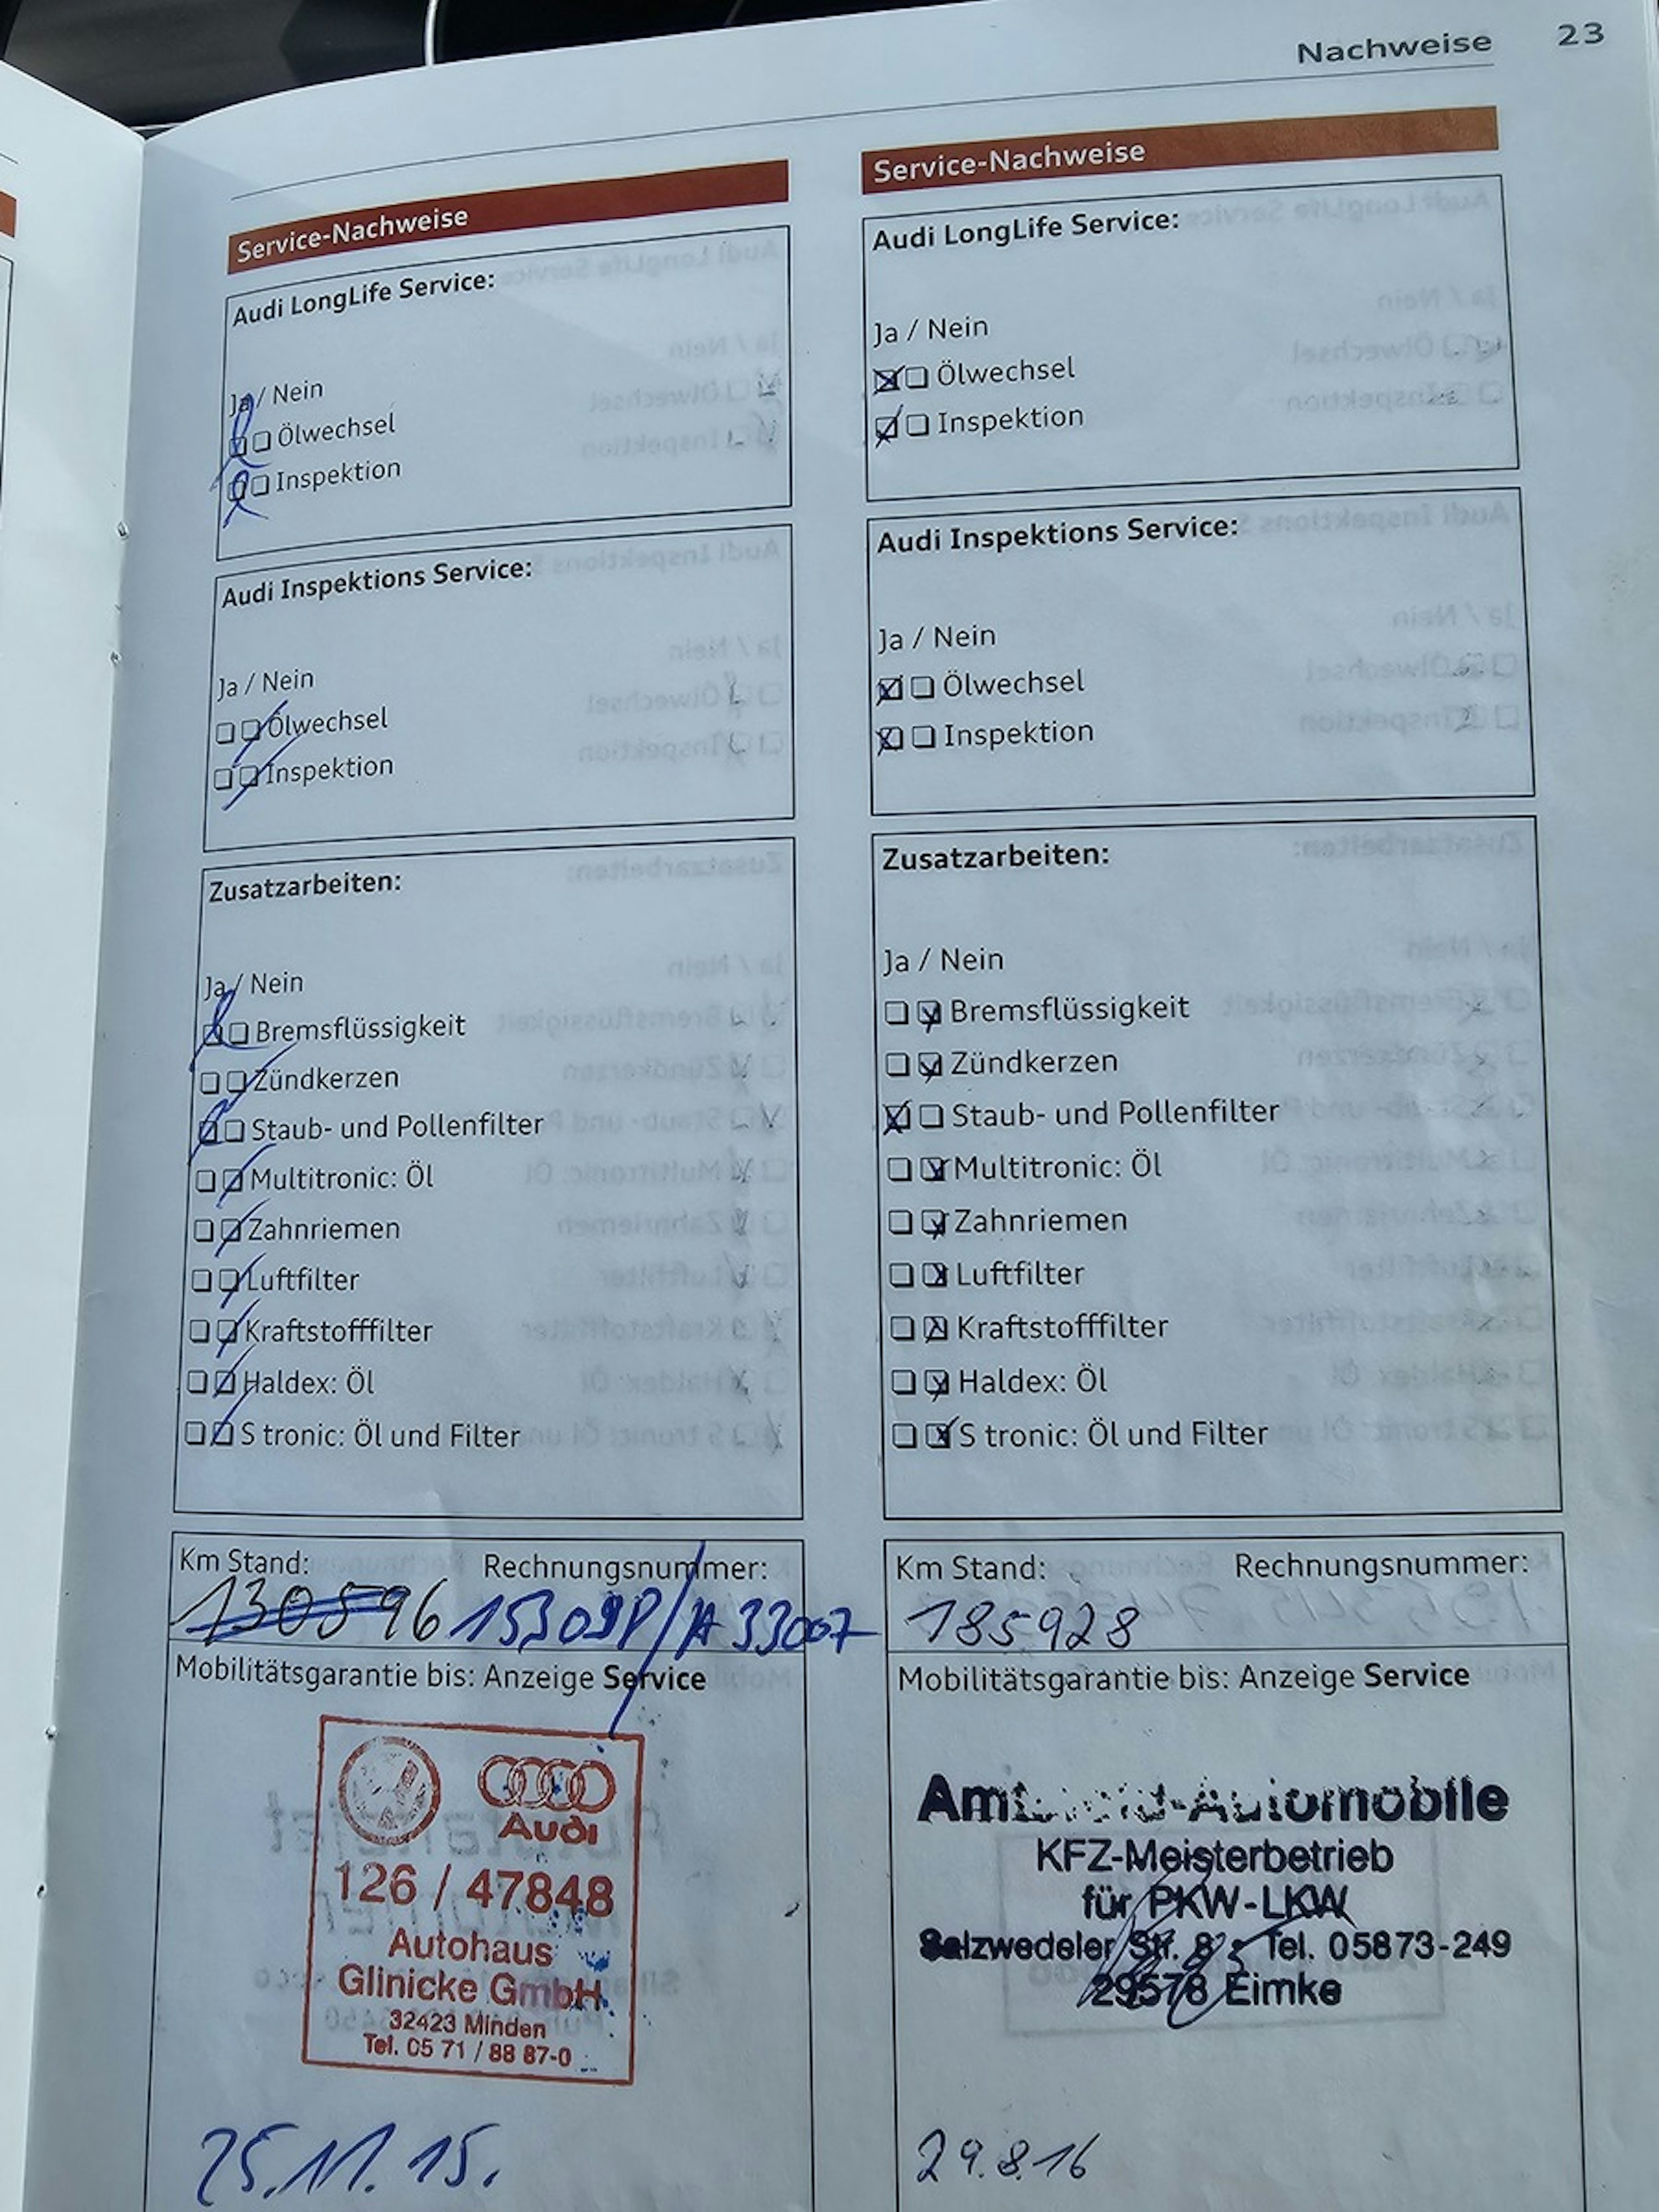 Nachweise 23
Service-Nachweise
Audi LongLife Service:
Ja / Nein
Ölwechsel
Inspektion
Audi Inspektions Service:
Ja / Nein
Ölwechsel
Inspektion
Zusatzarbeiten:
Ja / Nein
Bremsflüssigkeit
Zündkerzen
Staub- und Pollenfilter
Multitronic: Öl
Zahnriemen
Luftfilter
Kraftstofffilter
Haldex: Öl
S tronic: Öl und Filter
Km Stand: Rechnungsnummer:
130596
Mobilitätsgarantie bis: Anzeige Service
Audi
126 / 47848
Autohaus
Glinicke GmbH
32423 Minden
Tel. 05 71 / 88 87-0
25.11.15.
Service-Nachweise
Audi LongLife Service:
Ja / Nein
Ölwechsel
Inspektion
Audi Inspektions Service:
Ja / Nein
Ölwechsel
Inspektion
Zusatzarbeiten:
Ja / Nein
Bremsflüssigkeit
Zündkerzen
Staub- und Pollenfilter
Multitronic: Öl
Zahnriemen
Luftfilter
Kraftstofffilter
Haldex: Öl
S tronic: Öl und Filter
Km Stand: Rechnungsnummer:
185928
Mobilitätsgarantie bis: Anzeige Service
KFZ-Meisterbetrieb
für PKW-LKW
Salzwedeler Str. 8 Tel. 05873-249
29578 Eimke
29.8.16